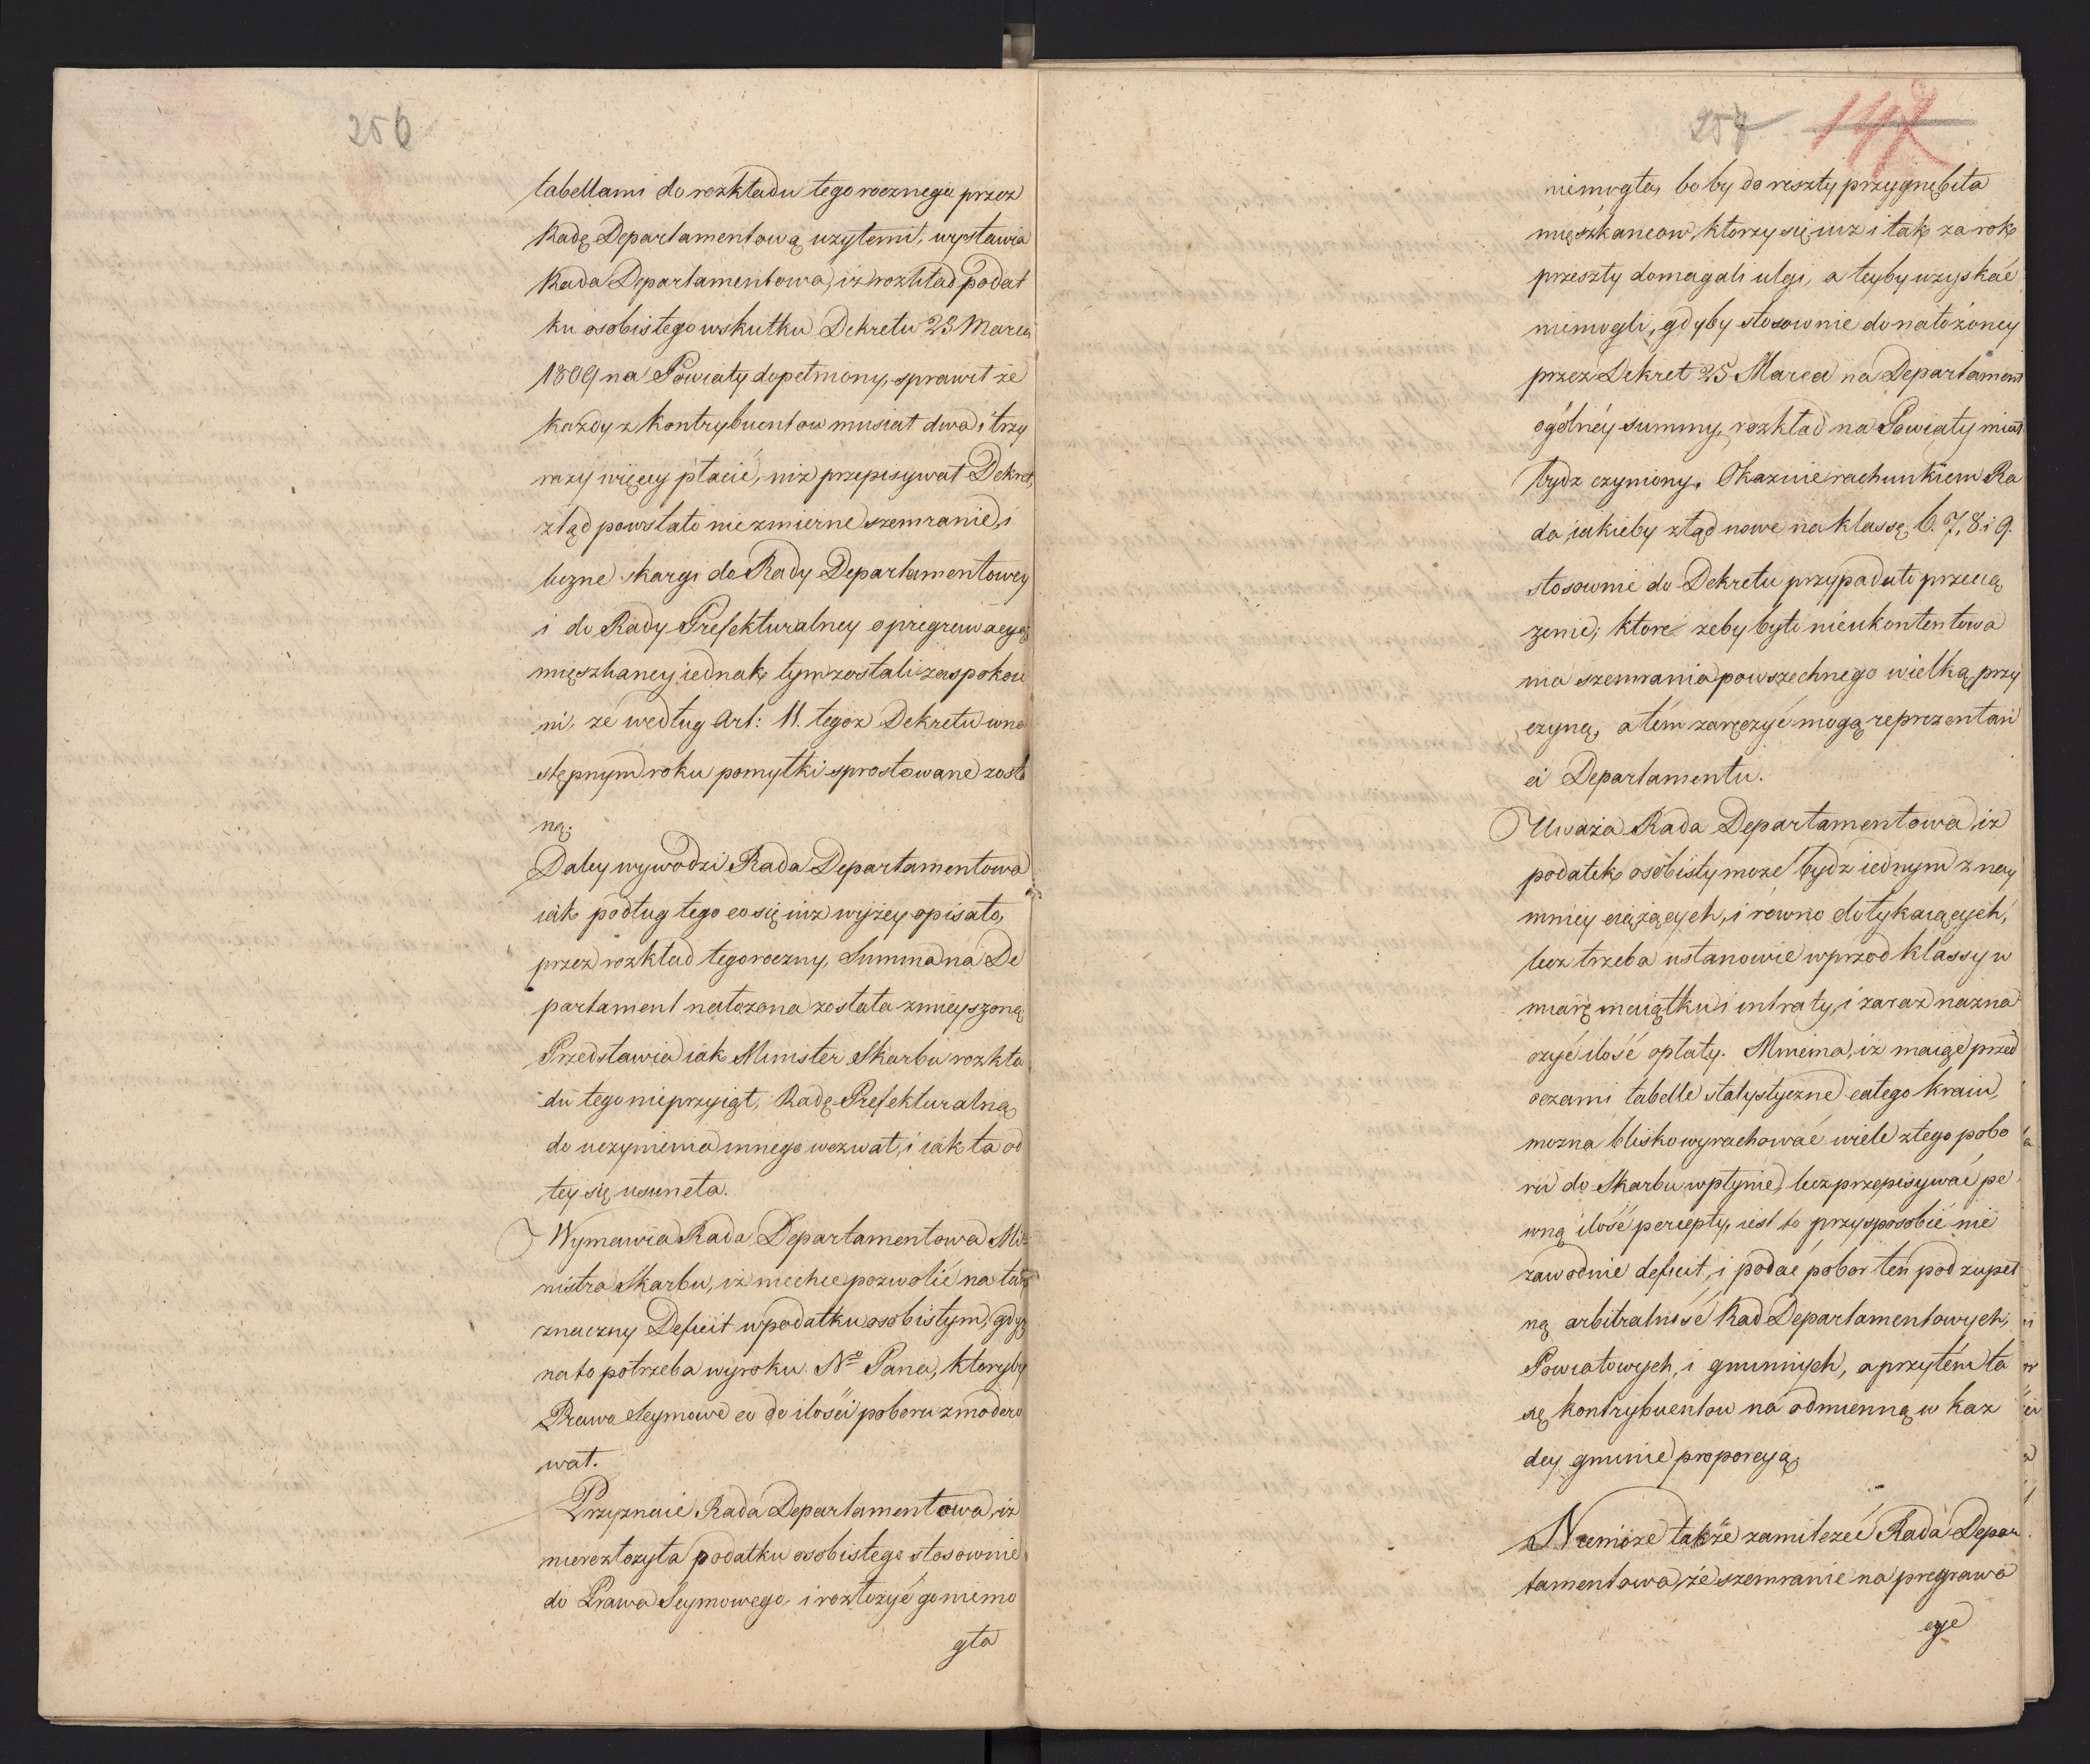 256
tabellami do rozkładu tego rocznego przez
Radę Departamentową uzytemi, wystawia
Rada Departamentowa, iż rozkład podat
ku osobistego wskutku Dekretu 23 Marca
1809 na Powiaty dopełniony, sprawił że
kazdy z kontrybuentow musiał dwa i trzy
razy więcey płacić, niz przepisywał Dekret,
ztąd powstało niezmierne szemranie, i
liczne skargi do Rady Departamentowey
i do Rady Prefekturalney o pregrawacyą
mięszkancy iednak tym zostali zaspokoie
ni, ze według Art: 11. tegoz Dekretu wna
stępnym roku pomyłki sprostowane zosta
ną.
Daley wywodzi Rada Departamentowa
iak podług tego co się iuz wyżey opisało,
przez rozkład tegoroczny, Summa na De
partament nałozona została zmieyszoną
Przedstawia iak Minister Skarbu rozkła
du tego nieprzyiął, Radę Prefekturalną
do uczynienia innego wezwał, i iak ta od
tey się usuneła.
Wymawia Rada Departamentowa Mi=
nistra Skarbu, iż niechce pozwolić na tak
znaczny Deficit w podatku osobistym, gdyż
na to potrzeba wyroku No Pana, ktoryby
Prawo Seymowe co do ilości poboru zmodero
wał.
Przyznaie Rada Departamentowa, iz
nierozłozyła podatku osobistego stosownie
do Prawa Seymowego, i rozłozyć go niemo
gła
257 147
niemogła, boby do reszty przygnębiła
mięszkancow, ktorzy się iuz i tak za rok
przeszły domagali ulgi, a teyby uzyskać
niemogli, gdyby stosownie do nałożoney
przez Dekret 25 Marca na Departament
ogólnéy summy, rozkład na Powiaty miał
bydz czyniony. Okazuie rachunkiem Ra
da, iakieby ztąd nowe na klassę 6. 7, 8 i 9.
stosownie do Dekretu przypadało przecią
zenie, ktore zeby było nieukontentowa
nia szemrania powszechnego wielką przy
czyną, a tém zaręczyć mogą reprezentan
ci Departamentu.
Uważa Rada Departamentowa, iz
podatek osobisty może bydz iednym z nay
mniey ciążących, i równo dotykaiących,
lecz trzeba ustanowić wprzod klassy w
miarę maiątku i intraty, i zaraz nazna
czyć ilość opłaty. Mniema, iż maiąc przed
oczami tabelle statystyczne całego kraiu,
mozna blisko wyrachować wiele z tego pobo
ru do Skarbu wpłynie, lecz przepisywać pe
wną ilość percepty, iest to przysposobić nie
zawodnie deficit, i podać pobor ten pod zupeł
ną arbitralność Rad Departamentowych,
Powiatowych, i gminnych, a przytém ta
xę kontrybuentow na odmienną w kaz
dey gminie proporcyą.
Niemoże także zamilczeć Rada Depar
tamentowa, że szemranie na pregrawa
cye